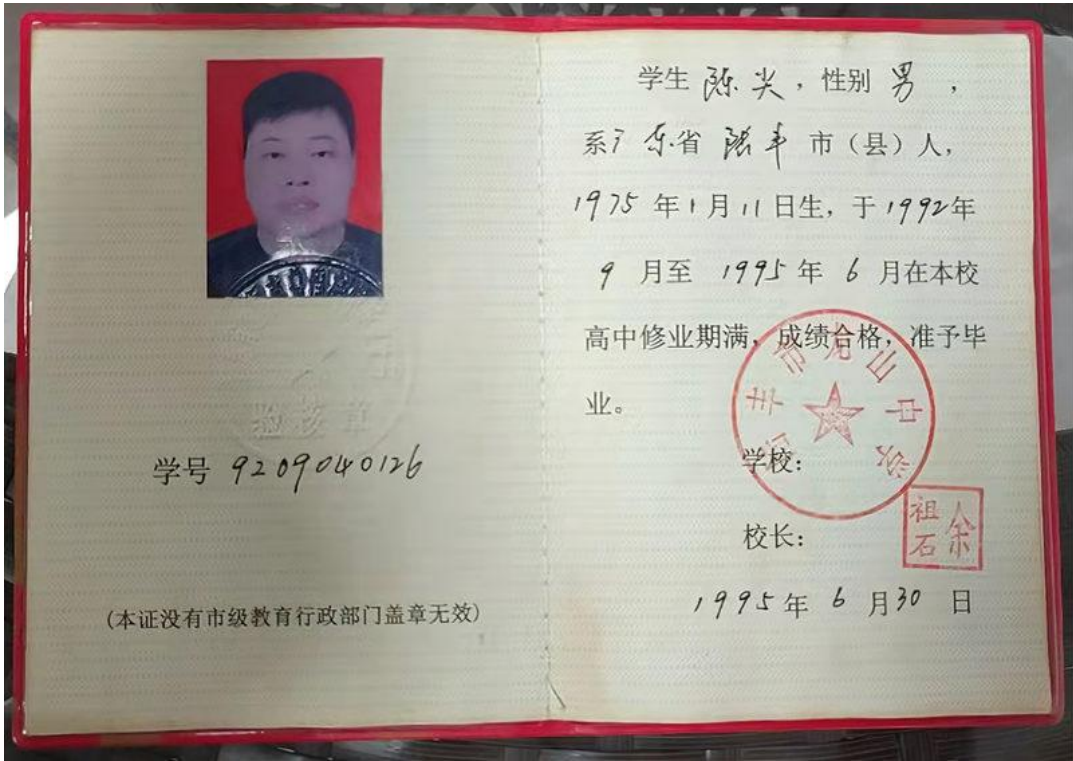 验核章
学号 9209040126
(本证没有市级教育行政部门盖章无效)
学生 陈尖,性别 男,
系广东省 陆丰 市(县)人,
1975 年 1 月 11 日生,于 1992 年
9 月至 1995 年 6 月在本校
高中修业期满,成绩合格,准予毕
业。
陆丰市龙山中学
学校:
校长:
余祖石
1995 年 6 月 30 日